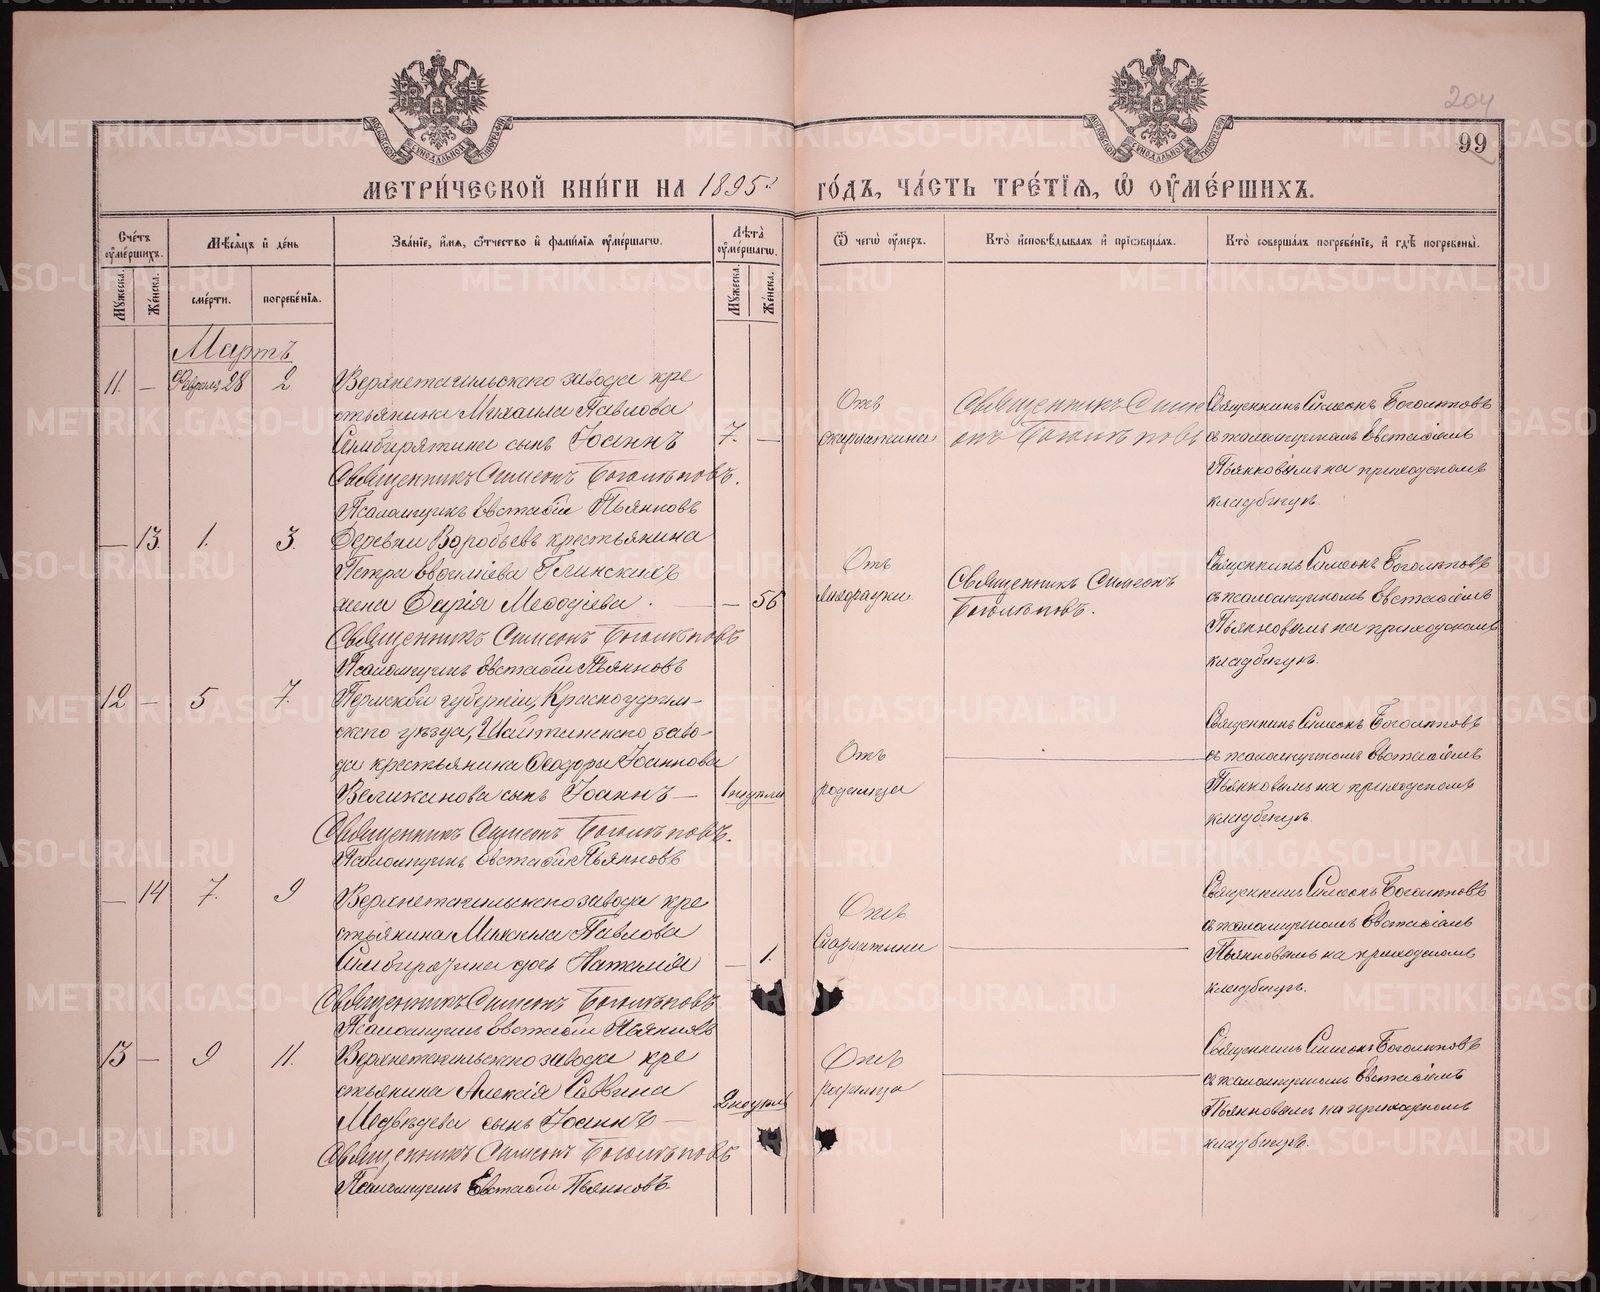 204
99
МОСКОВСКОЙ СѴНОДАЛЬНОЙ ТИПОГРАФІИ
МОСКОВСКОЙ СѴНОДАЛЬНОЙ ТИПОГРАФІИ
МЕТРИ́ЧЕСКОЙ КНИ́ГИ НА 1895й ГО́ДЪ, ЧА́СТЬ ТРЕ́ТІѦ, Ѡ ОУМЕ́РШИХЪ.
Сче́тъ оуме́ршихъ. Мѣ́сѧцъ и де́нь Зва́нїе, и́мѧ, ѻ́тчество и фами́лїѧ оуме́ршагѡ. Лѣ́та оуме́ршагѡ. Ѿ чегѡ̀ оу́меръ. Кто̀ и҆сповѣ́дывалъ и҆ прїѡбща́лъ. Кто̀ соверша́лъ погребе́нїе, и҆ гдѣ̀ погребены̀.
Мꙋ́жеска. Же́нска. сме́рти. погребе́нїѧ. Мꙋ́жеска. Же́нска.
Мартъ
11. — Февраля 28 2 Верхнетагильскаго завода кре
стьянина Михаила Павлова
Симбирятина сынъ Іоаннъ 7. —
Священникъ Симеонъ Боголѣповъ.
Псаломщикъ Евстафій Пьянковъ
Отъ
скарлатины
Священникъ Симе
онъ Боголѣповъ
Священникъ Симеонъ Боголѣповъ
съ псаломщикомъ Евстафіемъ
Пьянковымъ на приходскомъ
кладбищѣ.
— 13. 1. 3. Деревни Воробьевъ крестьянина
Петра Евдокиміева Глинскихъ
жена Дарія Меѳодіева. — 56
Священникъ Симеонъ Боголѣповъ
Псаломщикъ Евстафій Пьянковъ
Отъ
лихорадки
Священникъ Симеонъ
Боголѣповъ.
Священникъ Симеонъ Боголѣповъ
съ псаломщикомъ Евстафіемъ
Пьянковымъ на приходскомъ
кладбищѣ.
12 — 5 7. Пермской губерніи, Красноуфим-
скаго уѣзда, Шайтанскаго заво-
да крестьянина Ѳеодора Іоаннова
Великанова сынъ Іоаннъ — 1 недѣли
Священникъ Симеонъ Боголѣповъ.
Псаломщикъ Евстафій Пьянковъ
Отъ
родимца
Священникъ Симеонъ Боголѣповъ
съ псаломщикомъ Евстафіемъ
Пьянковымъ на приходскомъ
кладбищѣ.
— 14 7. 9 Верхнетагильскаго завода кре
стьянина Михаила Павлова
Симбирятина дочь Наталія — 1.
Священникъ Симеонъ Боголѣповъ
Псаломщикъ Евстафій Пьянковъ
Отъ
Скарлатины
Священникъ Симеонъ Боголѣповъ
съ псаломщикомъ Евстафіемъ
Пьянковымъ на приходскомъ
кладбищѣ.
13 — 9 11. Верхнетагильскаго завода кре
стьянина Алексія Саввина
Медвѣдева сынъ Іоаннъ — 2 недѣль
Священникъ Симеонъ Боголѣповъ
Псаломщикъ Евстафій Пьянковъ
Отъ
родимца
Священникъ Симеонъ Боголѣповъ
съ псаломщикомъ Евстафіемъ
Пьянковымъ на приходскомъ
кладбищѣ.
METRIKI.GASO-URAL.RU